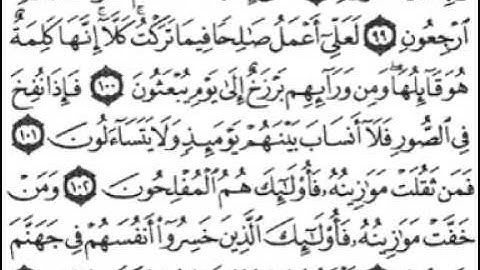 ٱرْجِعُونِ ٩٩ لَعَلِّىٓ أَعْمَلُ صَـٰلِحًا فِيمَا تَرَكْتُ ۚ كَلَّآ ۚ إِنَّهَا كَلِمَةٌ
هُوَ قَآئِلُهَا ۖ وَمِن وَرَآئِهِم بَرْزَخٌ إِلَىٰ يَوْمِ يُبْعَثُونَ ١٠٠ فَإِذَا نُفِخَ
فِى ٱلصُّورِ فَلَآ أَنسَابَ بَيْنَهُمْ يَوْمَئِذٍ وَلَا يَتَسَآءَلُونَ ١٠١
فَمَن ثَقُلَتْ مَوَٰزِينُهُۥ فَأُو۟لَـٰٓئِكَ هُمُ ٱلْمُفْلِحُونَ ١٠٢ وَمَنْ
خَفَّتْ مَوَٰزِينُهُۥ فَأُو۟لَـٰٓئِكَ ٱلَّذِينَ خَسِرُوٓا۟ أَنفُسَهُمْ فِى جَهَنَّمَ